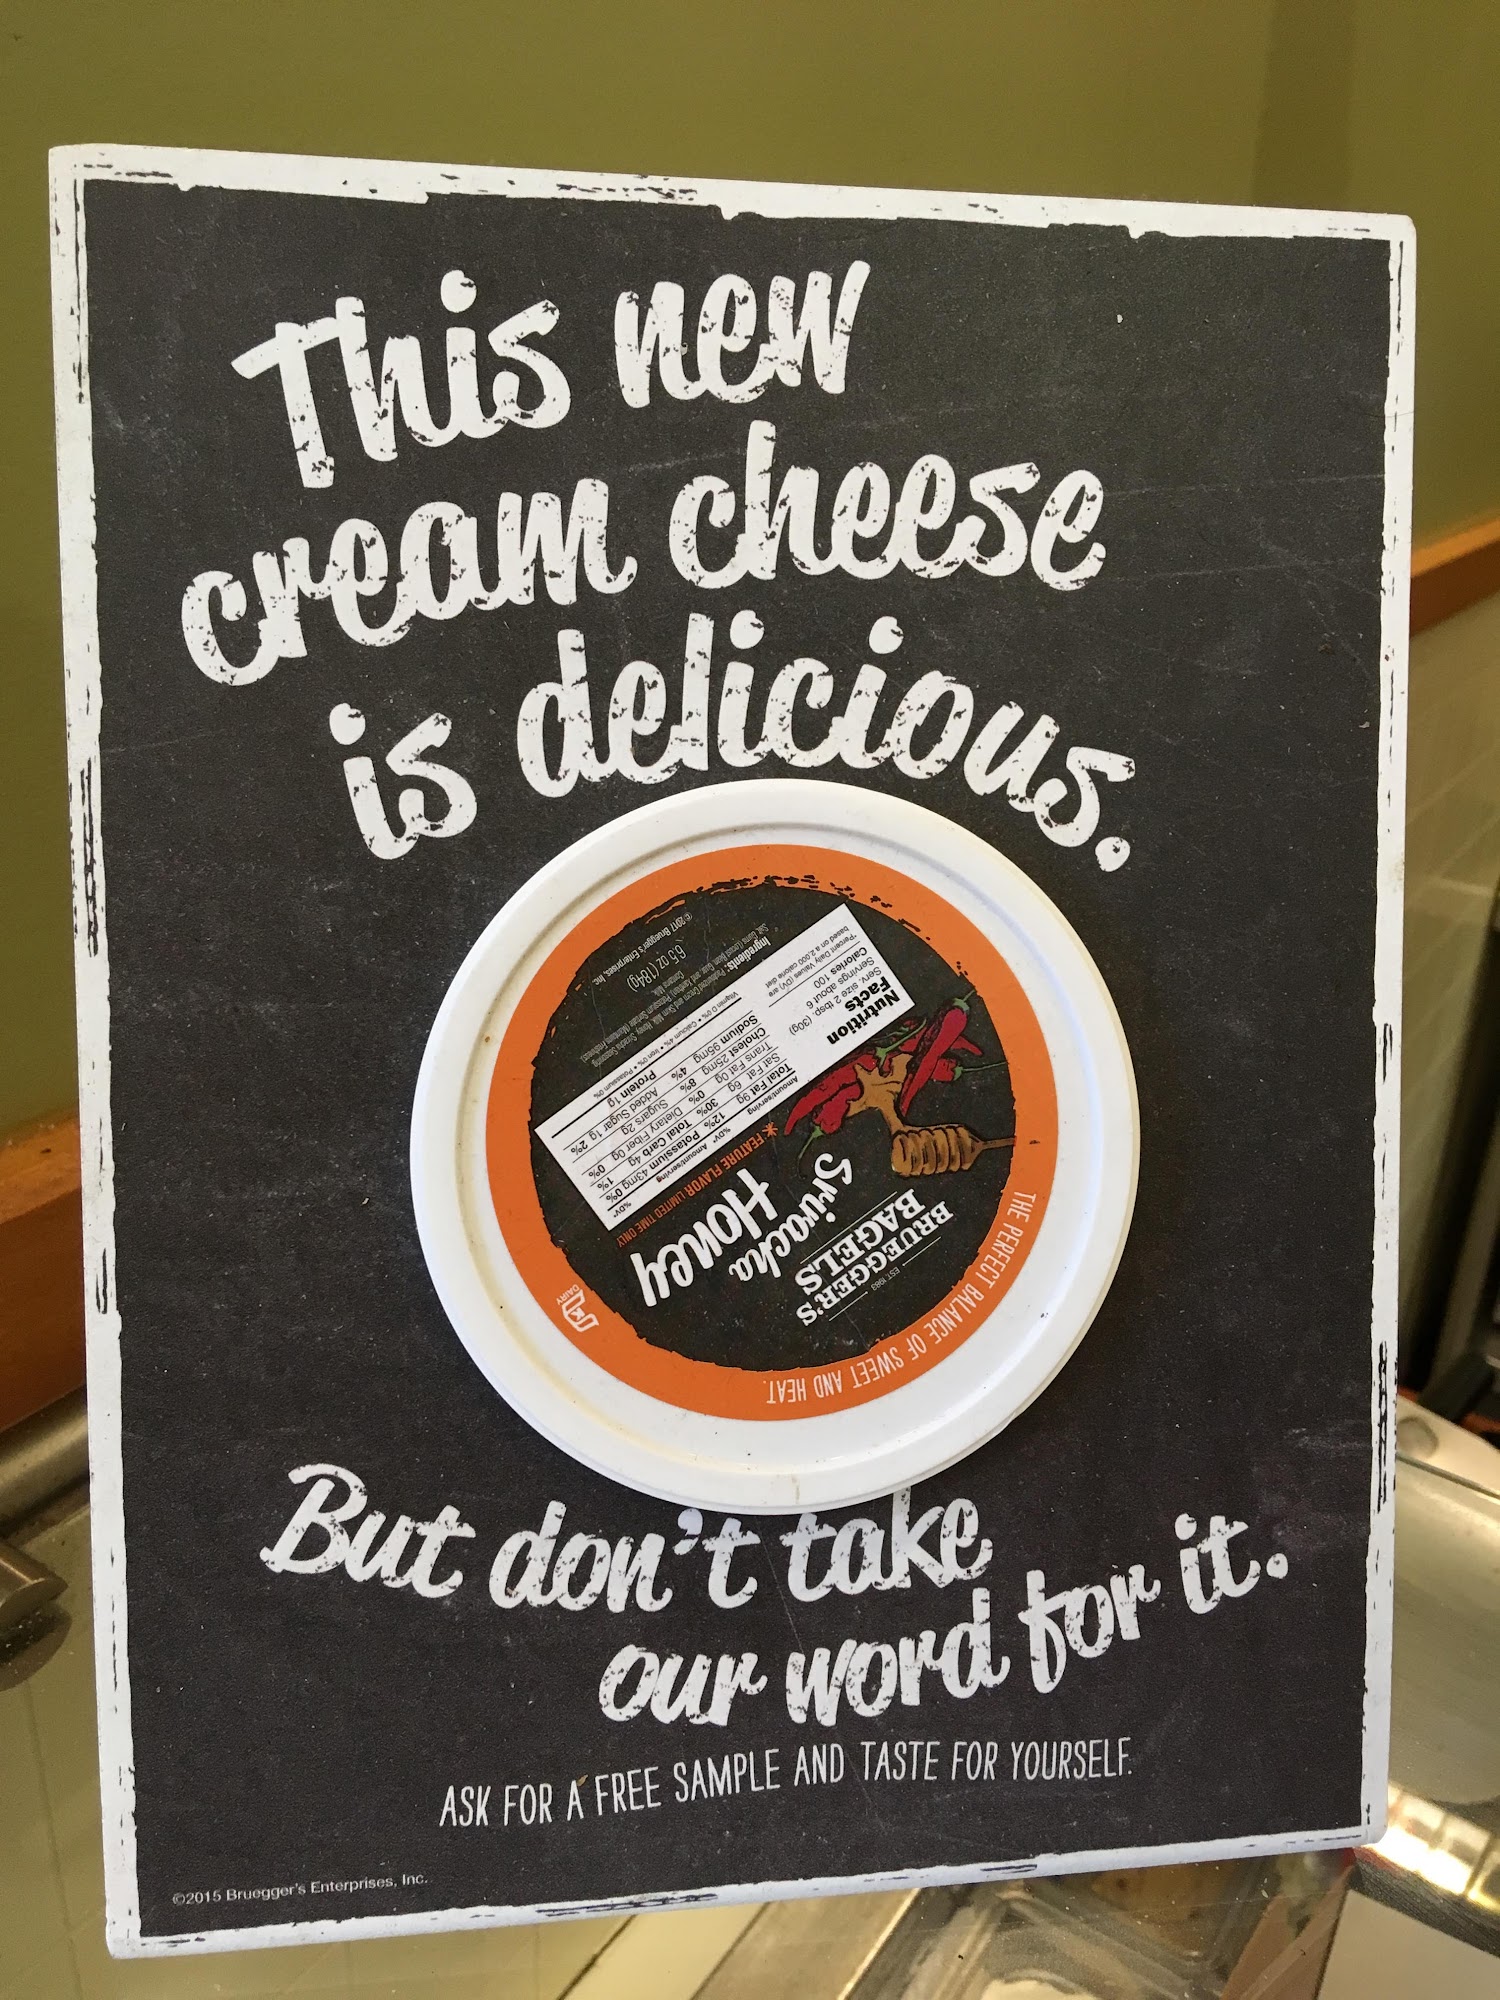 This new
cream cheese
is delicious.
BRUEGGER'S
EST. 1983
BAGELS
Sriracha
Honey
* FEATURE FLAVOR: LIMITED TIME ONLY
THE PERFECT BALANCE OF SWEET AND HEAT.
DAIRY
Nutrition
Facts
Serv. size 2 tbsp. (30g)
Servings about 6
Calories 100
*Percent Daily Values (DV) are
based on a 2,000 calorie diet
Amount/serving %DV*
Total Fat 9g 12%
Sat Fat 6g 30%
Trans Fat 0g
Cholest 25mg 8%
Sodium 95mg 4%
Amount/serving %DV*
Potassium 43mg 0%
Total Carb 4g 1%
Dietary Fiber 0g 0%
Sugars 2g
Added Sugar 1g 2%
Protein 1g
Vitamin D 0% • Calcium 4% • Iron 0% • Potassium 0%
Ingredients: Pasteurized
Contains: Milk.
6.5 OZ (184g)
© 2017 Bruegger's Enterprises, Inc.
But don't take
our word for it.
ASK FOR A FREE SAMPLE AND TASTE FOR YOURSELF.
©2015 Bruegger's Enterprises, Inc.